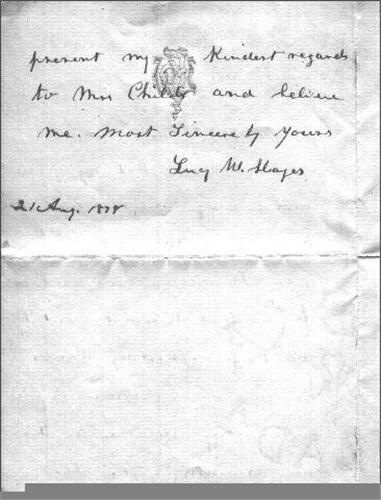 present my Kindest regards
to Mrs Childs and believe
me. Most Sincerely yours
Lucy W. Hayes
21 Aug. 1878